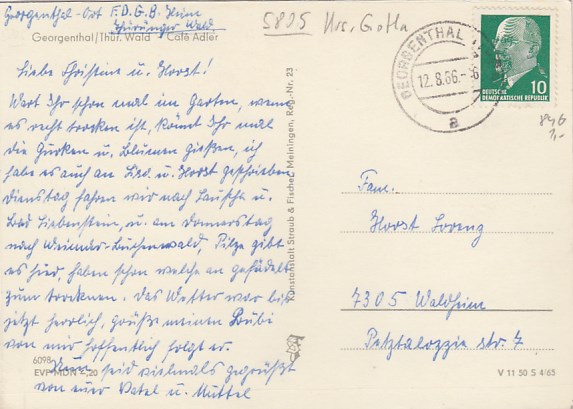 Georgenthal-Ort F.D.G.B. Heim
Thüringer Wald.
Georgenthal/Thür. Wald Café Adler
Liebe Christine u. Horst!
Wart Ihr schon mal im Garten, wenn
es recht trocken ist, könnt Ihr mal
die Gurken u. Blumen gießen, ich
habe es auch an u. Horst geschrieben
dienstag fahren wir nach Lauscha u.
Bad Liebenstein, u. am donnerstag
nach Weimar-Buchenwald, Pilze gibt
es hier, haben schon welche an gefädelt
zum trocknen. das Wetter war bis
jetzt herrlich, grüße meinen Bubi
von mir hoffentlich folgt er.
seid vielmals gegrüßt
von euer Vatel u. Muttel
6098
EVP MDN -,20
Kunstanstalt Straub & Fischer, Meiningen, Reg.-Nr. 23
5805 Krs. Gotha
GEORGENTHAL
12.8.66-6
a
10
DEUTSCHE
DEMOKRATISCHE REPUBLIK
1,-
Fam.
Horst Lorenz
7305 Waldheim
Pestalozzie str. 7
V 11 50 S 4/65